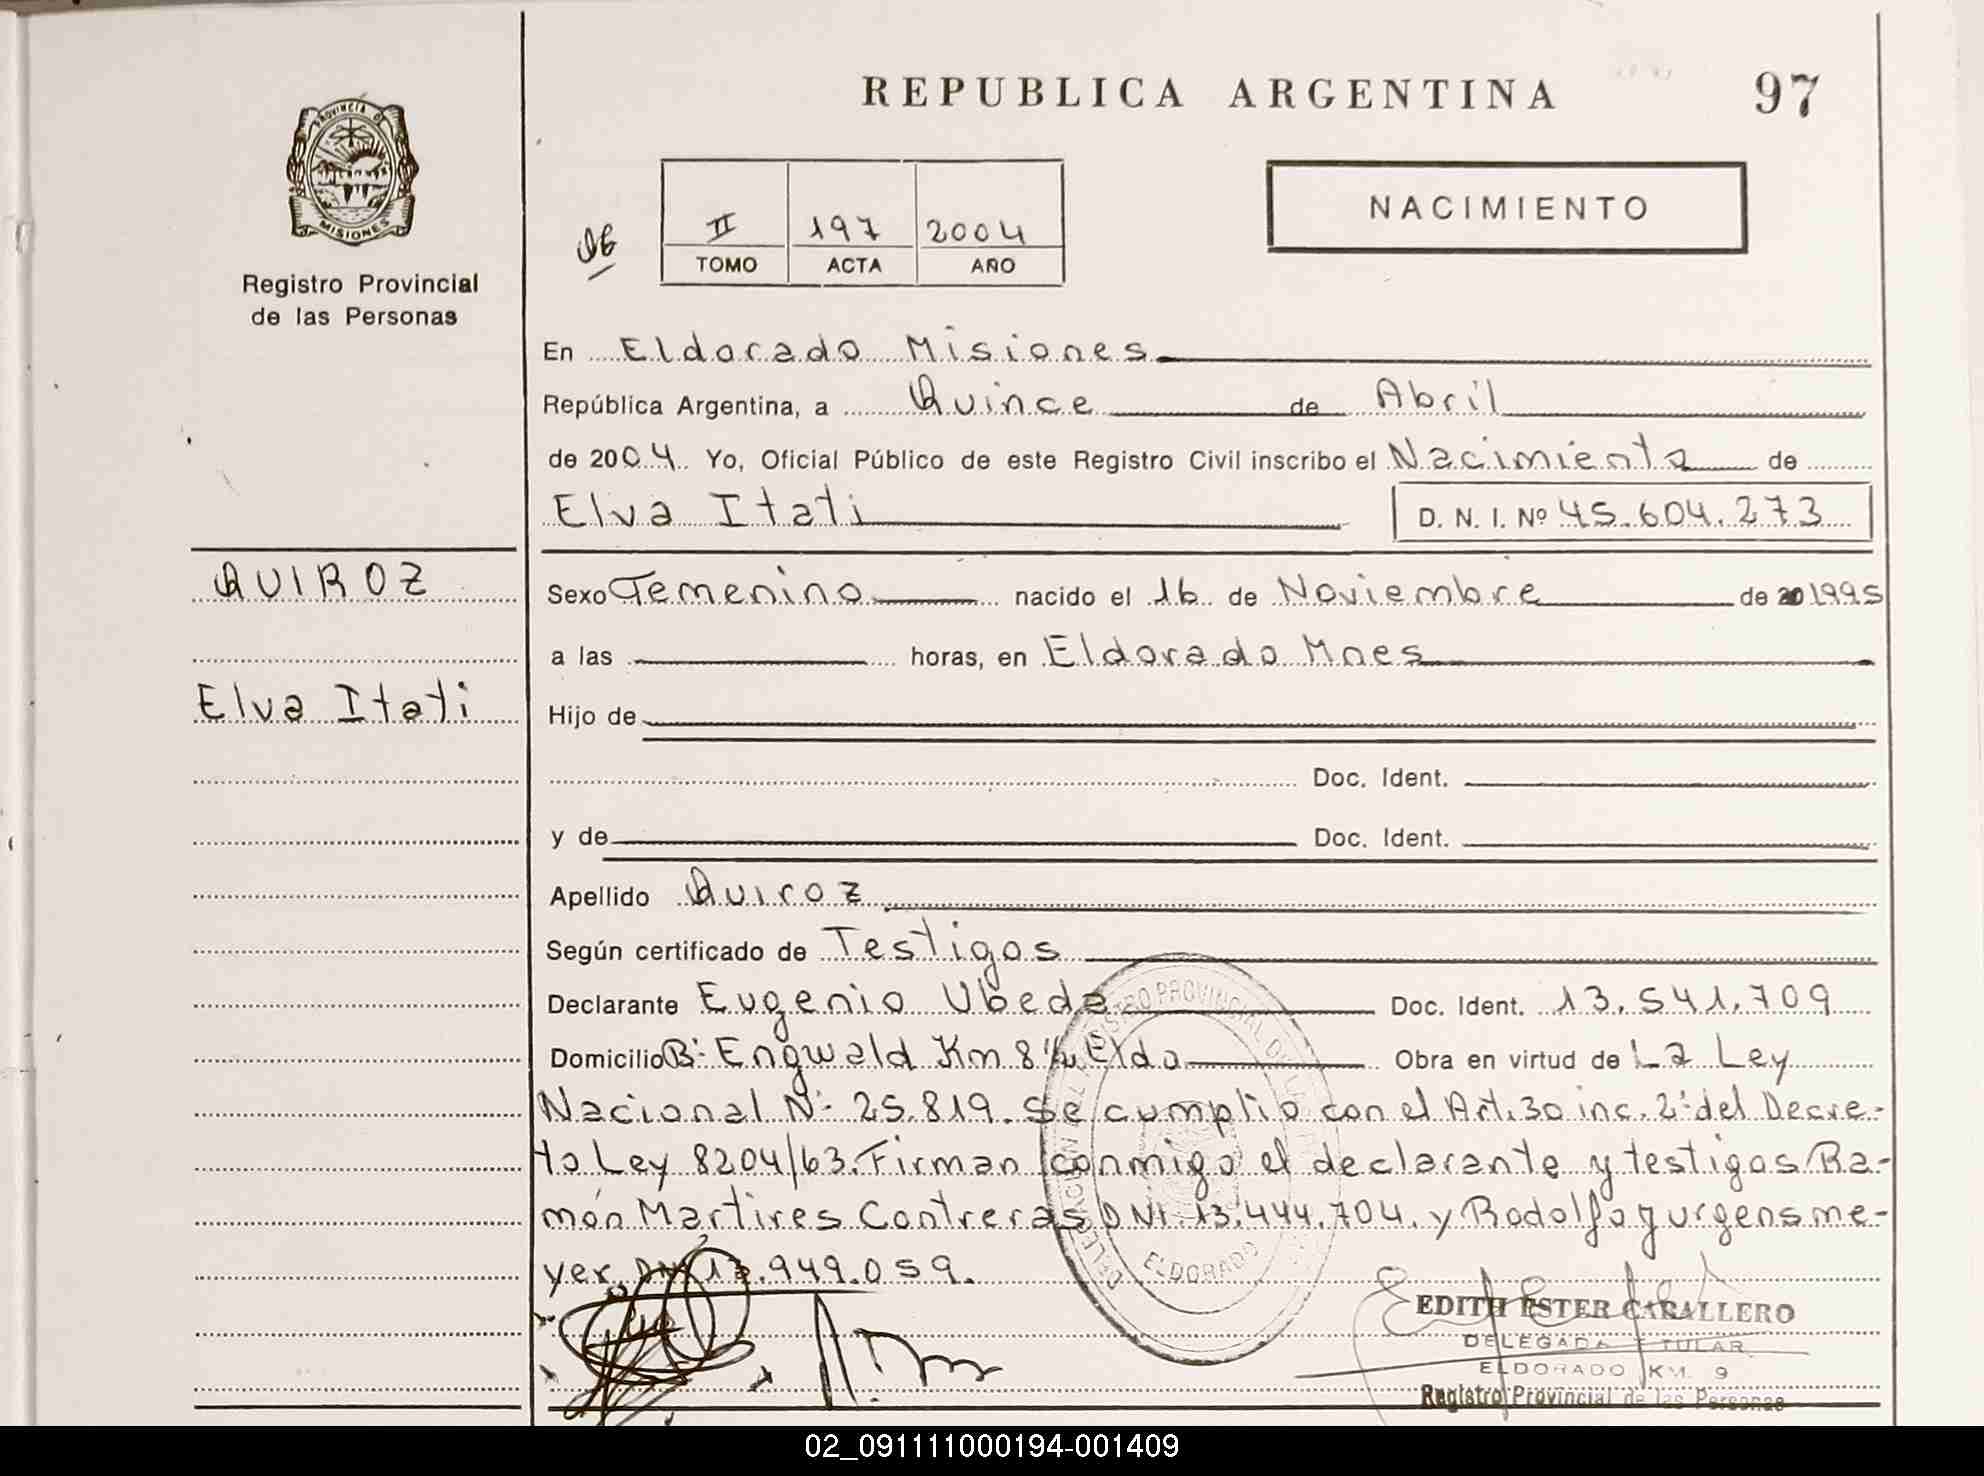 REPUBLICA ARGENTINA 97
PROVINCIA DE
MISIONES
Registro Provincial
de las Personas
NACIMIENTO
II 197 2004
TOMO ACTA AÑO
En Eldorado Misiones
República Argentina, a Quince de Abril
de 2004. Yo, Oficial Público de este Registro Civil inscribo el Nacimiento de
Elva Itati D. N. I. Nº 45.604.273
QUIROZ
Elva Itati
Sexo Femenino nacido el 16 de Noviembre de 20 1995
a las horas, en Eldorado Mnes
Hijo de
Doc. Ident.
y de Doc. Ident.
Apellido Quiroz
Según certificado de Testigos
Declarante Eugenio Ubeda Doc. Ident. 13.541.709
Domicilio Bº Engwald Km 8 Eldo Obra en virtud de La Ley
Nacional Nº 25.819. Se cumplio con el Art. 30 inc. 2º del Decre-
to Ley 8204/63. Firman conmigo el declarante y testigos Ra-
món Martires Contreras DNI. 13.444.704. y Rodolfo Jurgensme-
yer, DNI 13.949.059.
REGISTRO PROVINCIAL DE LAS
DELEGACION
ELDORADO
EDITH ESTER CABALLERO
DELEGADA TITULAR
ELDORADO KM. 9
Registro Provincial de las Personas
02_091111000194-001409